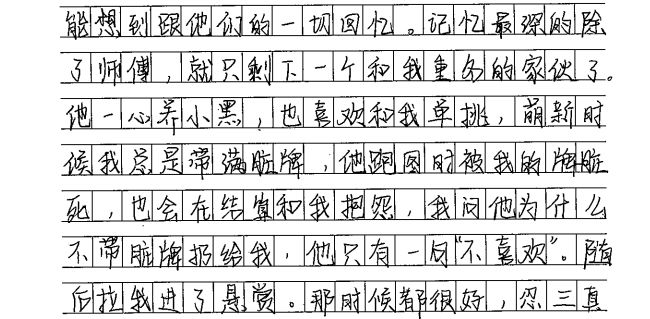 能想到跟他们的一切回忆。记忆最深的除
了师傅，就只剩下一个和我重名的家伙了。
他一心养小黑，也喜欢和我单挑，萌新时
候我总是带满脏牌，他跑图时被我的牌脏
死，也会在结算和我抱怨，我问他为什么
不带脏牌扔给我，他只有一句“不喜欢”。随
后拉我进了悬赏。那时候都很好，忍三真